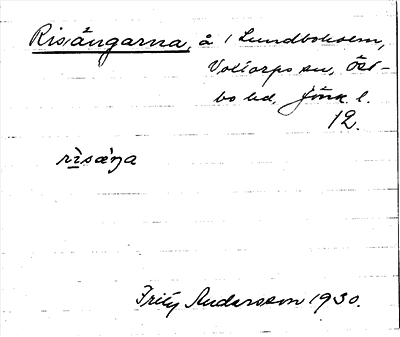 Risängarna, å 1 Lundboholm,
Voltorps sn, Öst-
bo hd, Jönk. l.
12.
rìsæ̀ŋa
Fritz Andersson 1930.